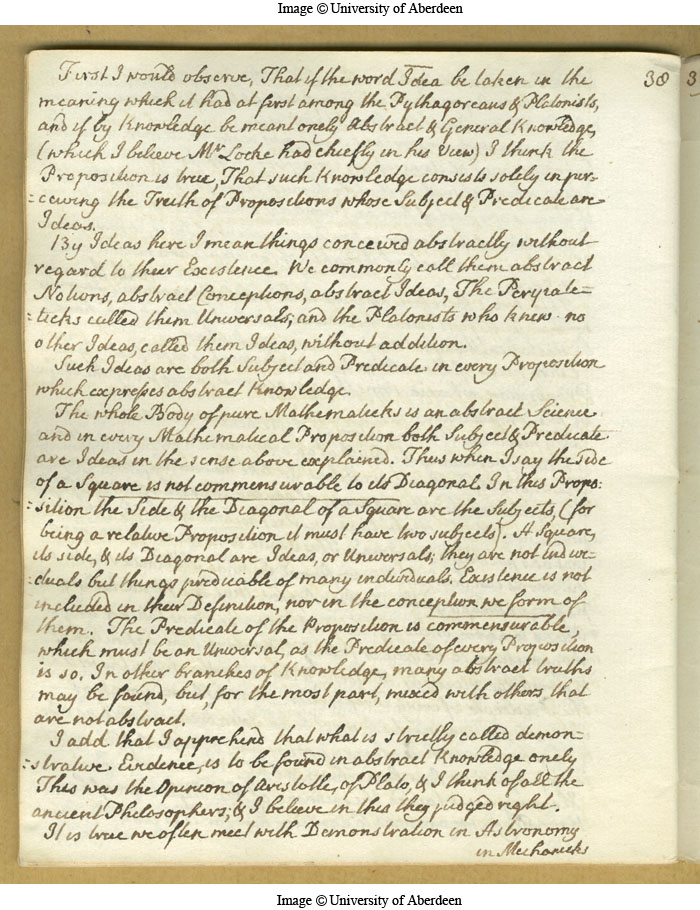 Image © University of Aberdeen
38
3
First I would observe, That if the word Idea be taken in the
meaning which it had at first among the Pythagoreans & Platonists,
and if by Knowledge be meant onely abstract & General Knowledge,
(which I believe Mr Locke had chiefly in his view) I think the
Proposition is true, That such Knowledge consists solely in per-
=ceiving the Truth of Propositions whose Subject & Predicate are
Ideas.
By Ideas here I mean things conceived abstractly without
regard to their Existence. We commonly call them abstract
Notions, abstract Conceptions, abstract Ideas, The Peripate=
=ticks called them Universals; and the Platonists who knew no
other Ideas, called them Ideas, without addition.
Such Ideas are both Subject and Predicate in every Proposition
which expresses abstract Knowledge.
The whole Body of pure Mathematicks is an abstract Science
and in every Mathematical Proposition both Subject & Predicate
are Ideas in the sense above explained. Thus when I say the side
of a Square is not commensurable to its Diagonal In this Propo:
=sition the Side & the Diagonal of a Square are the Subjects, (for
being a relative Proposition it must have two subjects). A Square,
its side, & its Diagonal are Ideas, or Universals; they are not indivi=
=duals but things predicable of many individuals. Existence is not
included in their Definition, nor in the conception we form of
them. The Predicate of the Proposition is commensurable,
which must be an Universal, as the Predicate of every Proposition
is so. In other branches of Knowledge, many abstract truths
may be found, but, for the most part, mixed with others that
are not abstract.
I add that I apprehend that what is strictly called demon=
=strative Evidence, is to be found in abstract Knowledge onely
This was the Opinion of Aristotle, of Plato, & I think of all the
ancient Philosophers; & I believe in this they judged right.
It is true we often meet with Demonstration in Astronomy
in Mechanicks
Image © University of Aberdeen